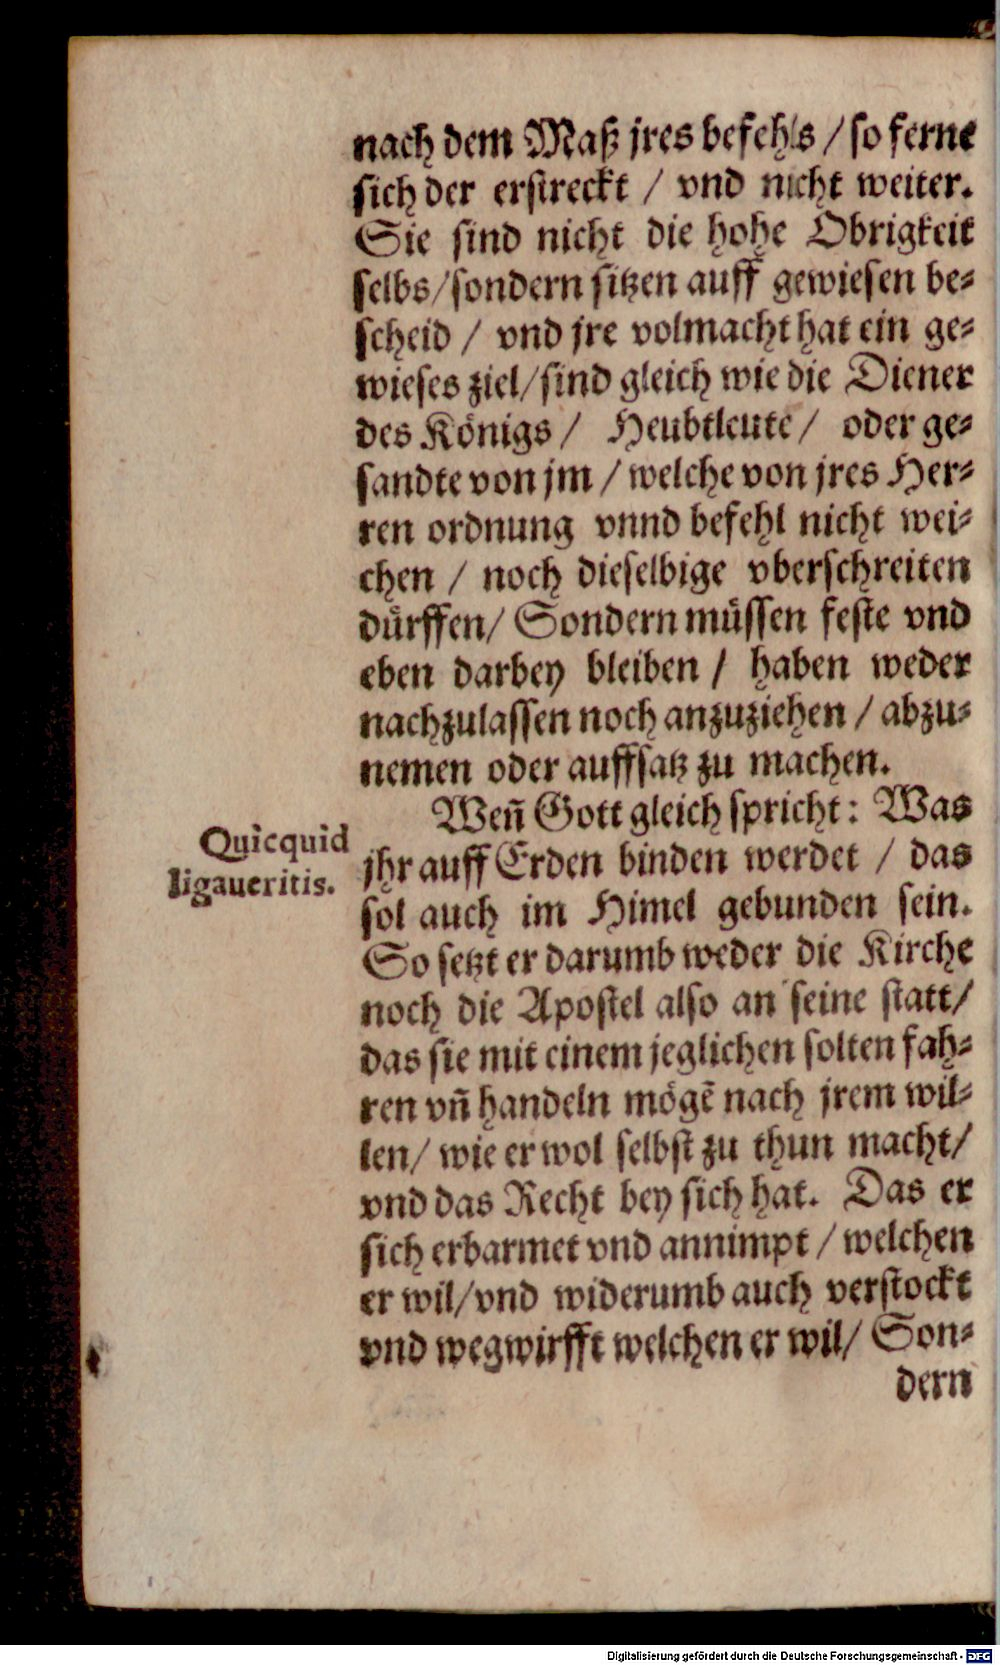 nach dem Maß jres befehls / so ferne
sich der erstreckt / vnd nicht weiter.
Sie sind nicht die hohe Obrigkeit
selbs/ sondern sitzen auff gewiesen be⸗
scheid / vnd jre volmacht hat ein ge⸗
wieses ziel/ sind gleich wie die Diener
des Königs / Heubtleute / oder ge⸗
sandte von jm / welche von jres Her⸗
ren ordnung vnnd befehl nicht wei⸗
chen / noch dieselbige vberschreiten
dürffen/ Sondern müssen feste vnd
eben darbey bleiben / haben weder
nachzulassen noch anzuziehen / abzu⸗
nemen oder auffsatz zu machen.
Weñ Gott gleich spricht: Was
Quicquid
ligaueritis.
jhr auff Erden binden werdet / das
sol auch im Himel gebunden sein.
So setzt er darumb weder die Kirche
noch die Apostel also an seine statt/
das sie mit einem jeglichen solten fah⸗
ren vñ handeln mögẽ nach jrem wil⸗
len/ wie er wol selbst zu thun macht/
vnd das Recht bey sich hat. Das er
sich erbarmet vnd annimpt / welchen
er wil/ vnd widerumb auch verstockt
vnd wegwirfft welchen er wil/ Son⸗
dern
Digitalisierung gefördert durch die Deutsche Forschungsgemeinschaft - DFG